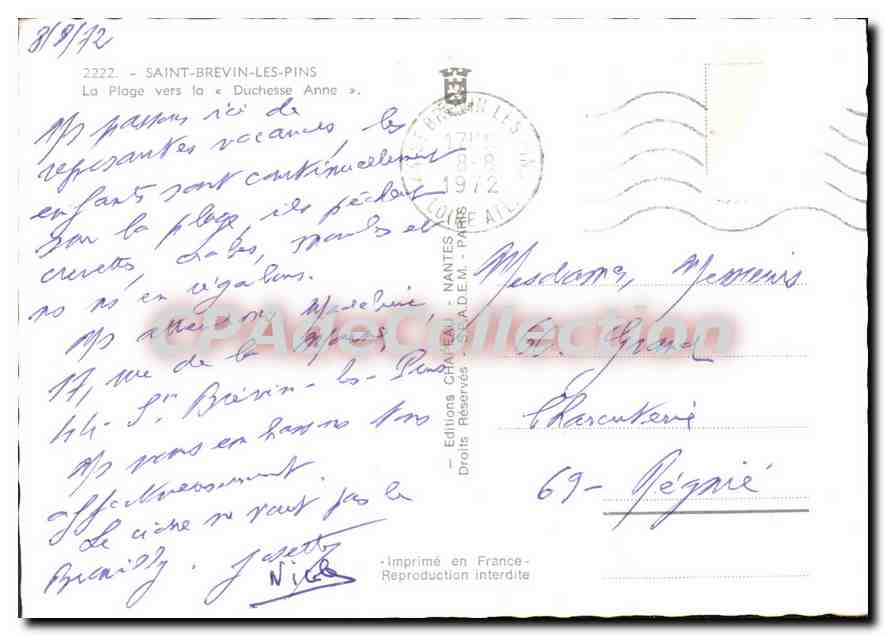 8/8/72
2222. - SAINT-BREVIN-LES-PINS
La Plage vers la « Duchesse Anne ».
Ns passons ici de
reposantes vacances, les
enfants sont continuellement
sur la plage, ils pêchent
crevettes, crabes, moules et
ns ns en régalons.
Ns attendons
17, rue de la
44- St Brévin-les-Pins
Ns vous embrassons tous
affectueusement.
Le cidre ne vaut pas le
Brouilly. Josette
Nicole
SAINT BREVIN LES PINS
17H
8-8
1972
LOIRE ATL.
— Editions CHAPEAU - NANTES —
Droits Réservés - S.P.A.D.E.M. - PARIS
Mesdames, Messieurs
Grand
Charcuterie
69- Régnié
-Imprimé en France-
Reproduction interdite
CPAdeCollection